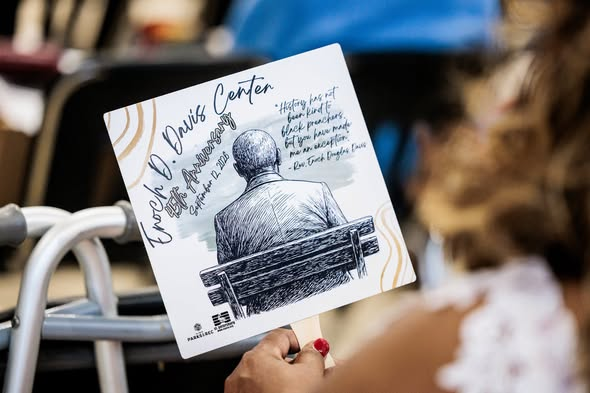 Enoch D. Davis Center
45th Anniversary
September 12, 2026
"History has not
been kind to
black preachers,
but you have made
me an exception."
Rev. Enoch Douglas Davis
PARKS & REC